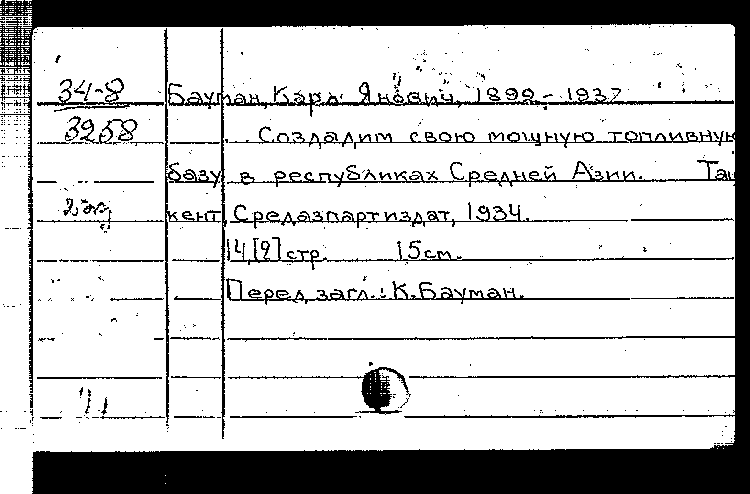 34-8 Бауман, Карл Янович, 1892 - 1937
3258 ... Создадим свою мощную топливную
базу в республиках Средней Азии. Таш
2 экз кент, Средазпартиздат, 1934.
14,[2] стр. 15 см.
Перед загл.: К. Бауман.